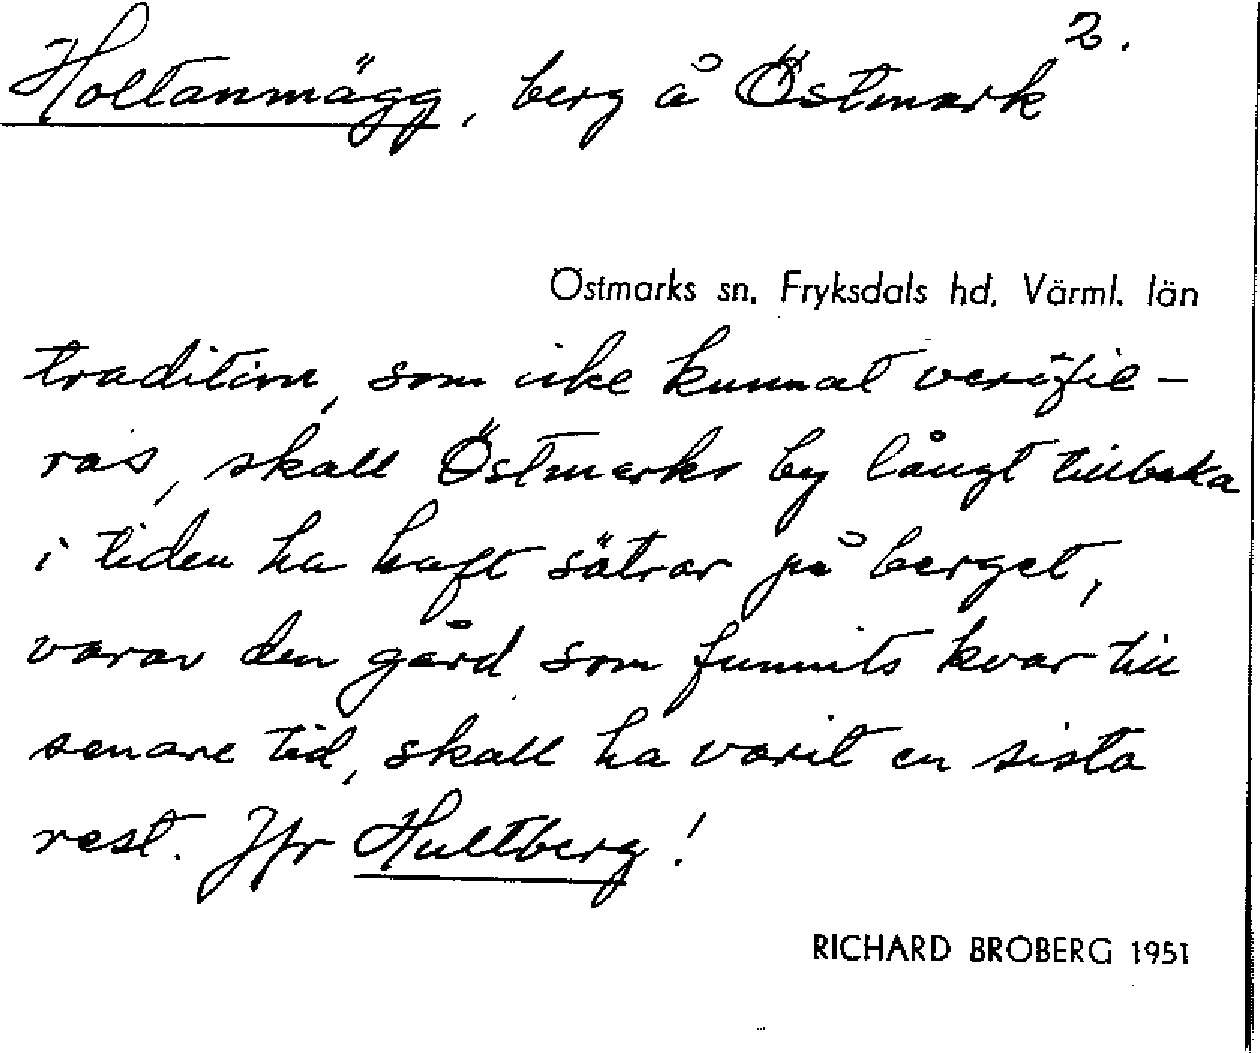 2.
Holtanmägg, berg å Östmark
Östmarks sn. Fryksdals hd. Värml. län
tradition, som icke kunnat verifie-
ras, skall Östmarks by långt tillbaka
i tiden ha haft sätrar på berget,
varav den gård som funnits kvar till
senare tid, skall ha varit en sista
rest. Jfr Hultberg!
RICHARD BROBERG 1951